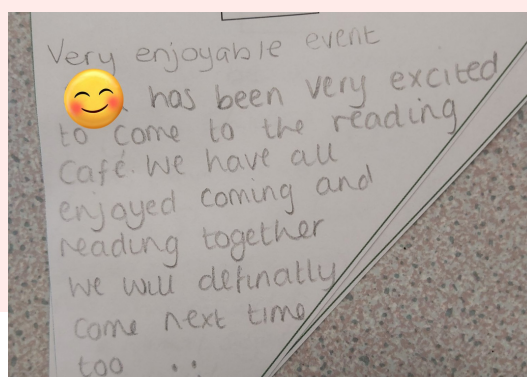 Very enjoyable event
has been very excited
to come to the reading
Café. We have all
enjoyed coming and
reading together
We will definatly
come next time
too